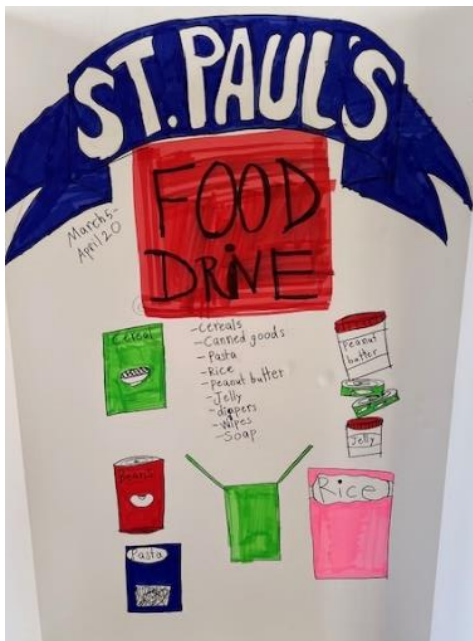 ST. PAUL'S
FOOD
DRiNE
March 5-
April 20
-Cereals
-Canned goods
-Pasta
-Rice
-peanut butter
-Jelly
-diapers
-wipes
-Soap
Cereal
Peanut
butter
Jelly
Beans
Rice
Pasta